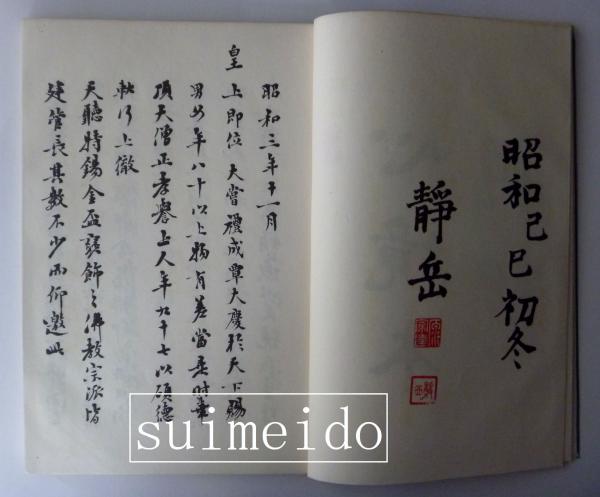 昭和己巳初冬
靜岳
昭和三年十一月
皇上即位大嘗禮成覃大慶於天下賜
男女年八十以上物有差當是時華
頂大僧正孝譽上人年九十七以碩德
執行上徹
天聽特錫金盃寵飾之佛教宗派皆
建管長其數不少而仰邀此
suimeido